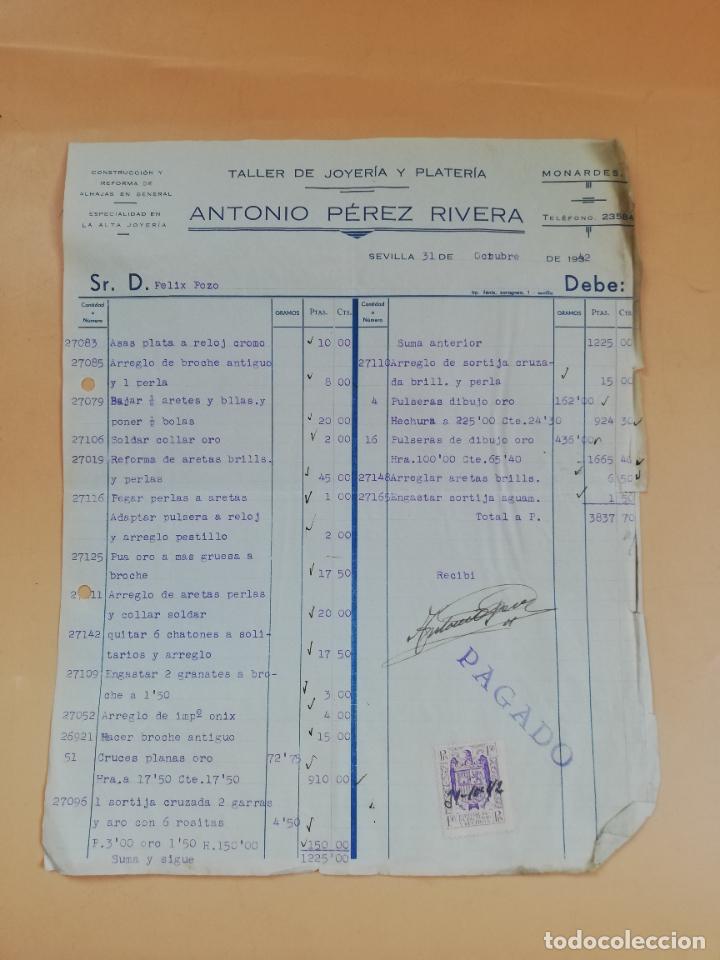 CONSTRUCCIÓN Y
REFORMA DE
ALHAJAS EN GENERAL
ESPECIALIDAD EN
LA ALTA JOYERÍA
TALLER DE JOYERÍA Y PLATERÍA
ANTONIO PÉREZ RIVERA
MONARDES,
TELÉFONO. 23584
SEVILLA 31 DE Octubre DE 1942
Sr. D. Felix Pozo
Debe:
Cantidad o Número GRAMOS PTAS. CTS.
27083 Asas plata a reloj cromo 10 00
27085 Arreglo de broche antiguo
y 1 perla 8 00
27079 Bajar ½ aretes y bllas.y
poner ½ bolas 20 00
27106 Soldar collar oro 2 00
27019 Reforma de aretas brills.
y perlas 45 00
27116 Pegar perlas a aretas 1 00
Adaptar pulsera a reloj
y arreglo pestillo 2 00
27125 Pua oro a mas gruesa a
broche 17 50
Arreglo de aretas perlas
y collar soldar 20 00
27142 quitar 6 chatones a soli-
tarios y arreglo 17 50
27109 Engastar 2 granates a bro-
che a 1'50 3 00
27052 Arreglo de impº onix 4 00
26921 Hacer broche antiguo 15 00
51 Cruces planas oro 72'75
Hra.a 17'50 Cte.17'50 910 00
27096 1 sortija cruzada 2 garras
y aro con 6 rositas 4'50
P.3'00 oro 1'50 H.150'00 150 00
Suma y sigue 1225'00
Cantidad o Número GRAMOS PTAS. CTS.
Suma anterior 1225 00
27110 Arreglo de sortija cruza-
da brill. y perla 15 00
4 Pulseras dibujo oro 162'00
Hechura a 225'00 Cte.24'30 924 30
16 Pulseras de dibujo oro 436'00
Hra.100'00 Cte.65'40 1665 40
27148 Arreglar aretas brills. 6 50
27165 Engastar sortija aguam. 1 50
Total a P. 3837 70
Recibi
PAGADO
todocoleccion
todocoleccion.net